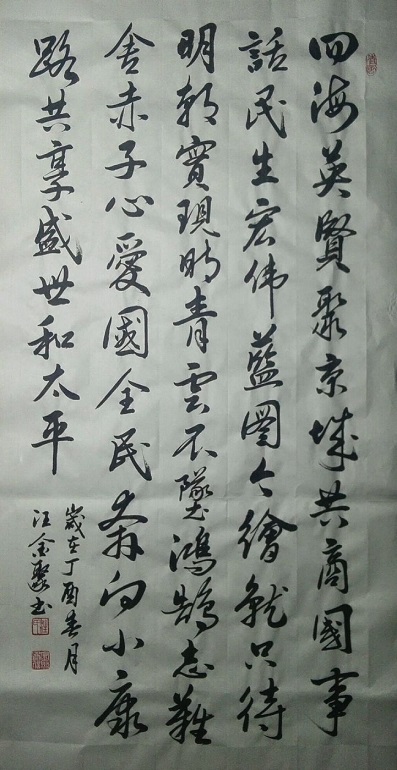 四海英賢聚京城共商國事
話民生宏伟藍圖今繪就只待
明朝實現時青雲不墜鴻鵠志難
舍赤子心愛國全民奔向小康
路共享盛世和太平
歲在丁酉春月
汪金聚书